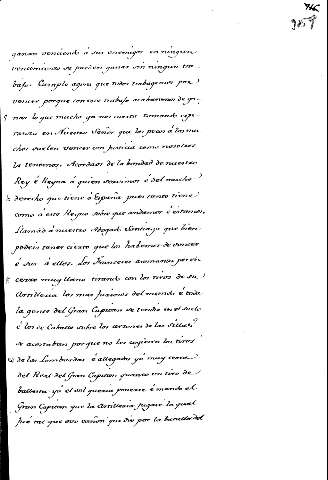 ganan venciendo á sus enemigos en ningun
vencimiento se pueden ganar sin ningun tra
bajo. Cumple agora que todos trabagemos por
vencer porque con este trabajo acabaremos de ga-
nar lo que mucho ya nos cuesta tomando espe-
ranza en Nuestro Señor que los pocos á los mu
chos suelen vencer con justicia como nosotros
la tenemos. Acordaos de la bondad de nuestro
Rey é Reyna á quien servimos é del mucho
derecho que tiene á España pues tanto tiene
como á este Reyno sobre que andamos é estamos,
llamad á nuestro Abogado Santiago que bien
podeis tener cierto que los habemos de vencer
é son á ellos. Los Franceses
muy llano tirando con los tiros de su
Artilleria los mas furiosos del mundo é toda
la gente del Gran Capitan se tendia en el suelo
é los de Caballo sobre los arzones de las Sillas
se acostaban porque no los cogieren los tiros
de las Lombardas é allegados yá muy cerca
del Real del Gran Capitan quanto un tiro de
ballesta yá el sol queria ponerse é manda el
Gran Capitan que la Artilleria jugase la qual
fué tal que ese cañon que dió por la batalla del